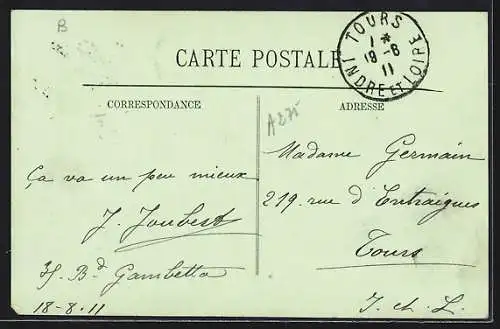 B
CARTE POSTALE
TOURS
1 *
19-8
11
INDRE ET LOIRE
CORRESPONDANCE
ADRESSE
A275
Ça va un peu mieux
J. Joubert
Bd Gambetta
18-8.11
Madame Germain
219, rue d'Entraigues
Tours
I. et L.